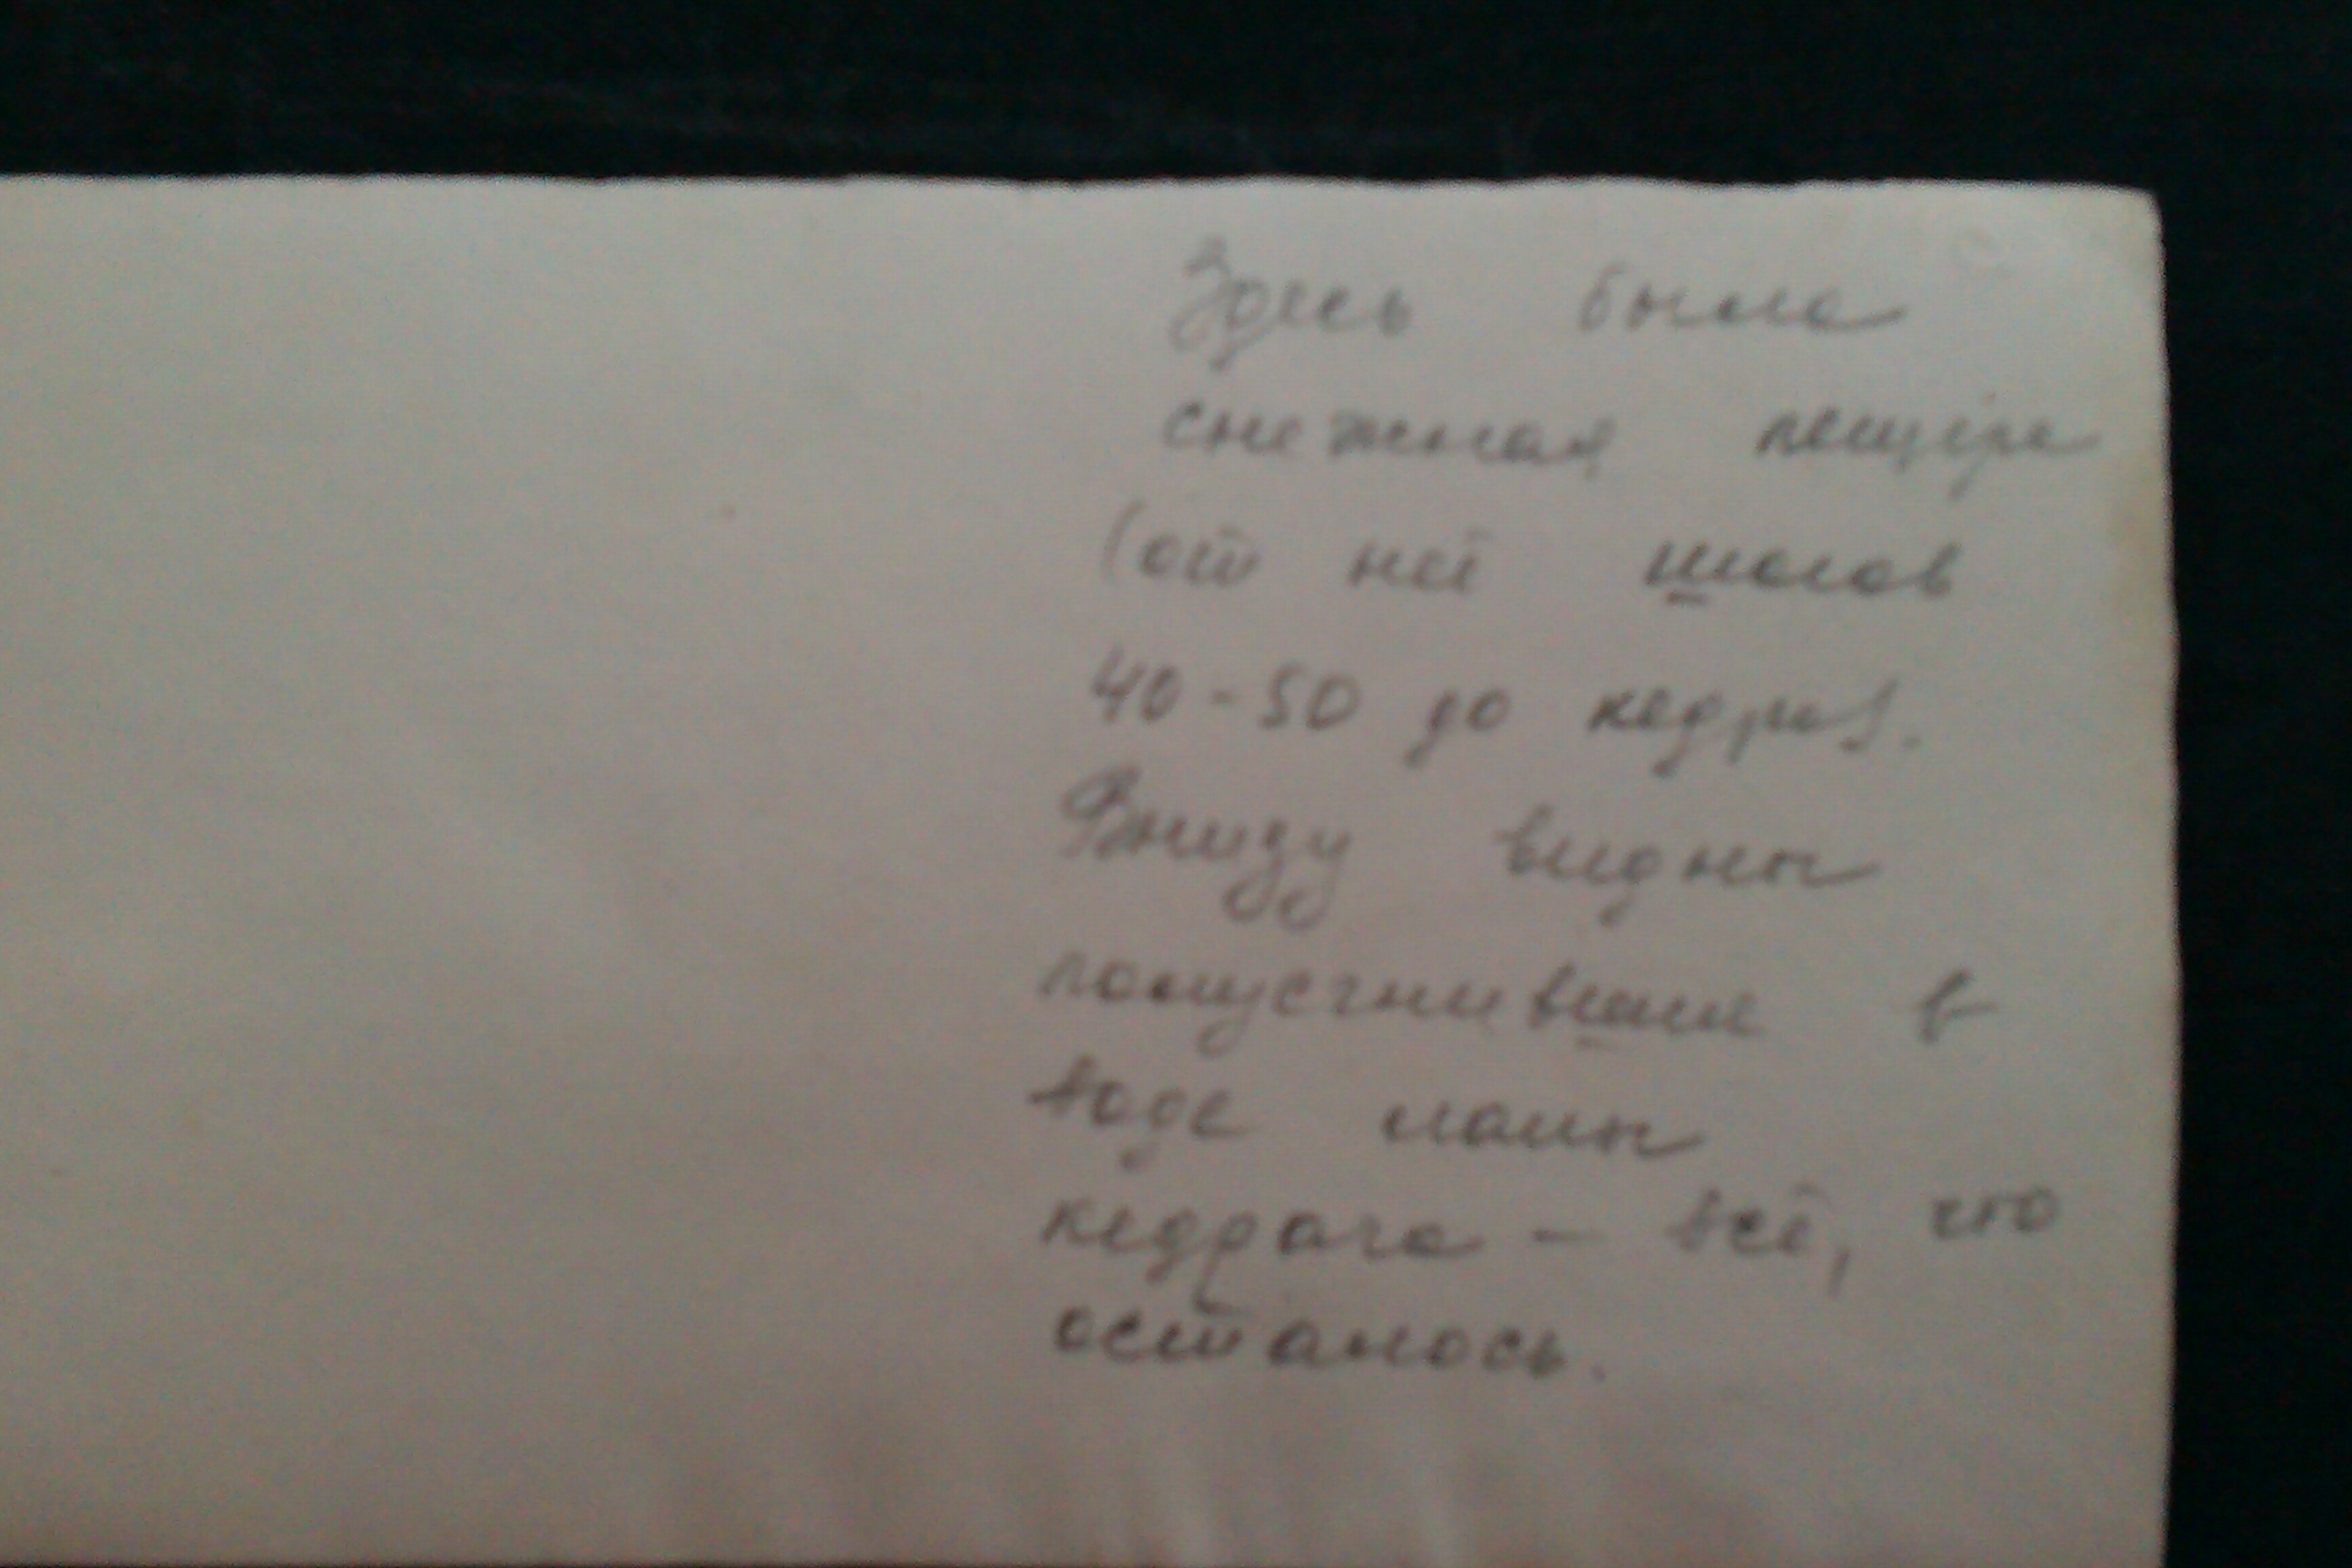 Здесь была
снежная пещера
(от неё шагов
40-50 до кедра).
Внизу видны
полусгнившие в
воде лапы
кедрача — всё, что
осталось.